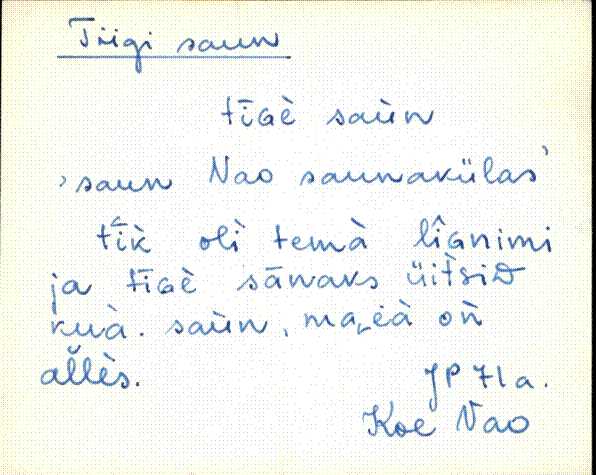 Tiigi saun
tīɢè saùn
›saun Nao saunakülas’
tī̀k oli temà lîɢnimi
ja tīɢè sānaks üitsiᴅ
kuà. saùn, ma eà oǹ
allès.
JP 71 a.
Koe Nao